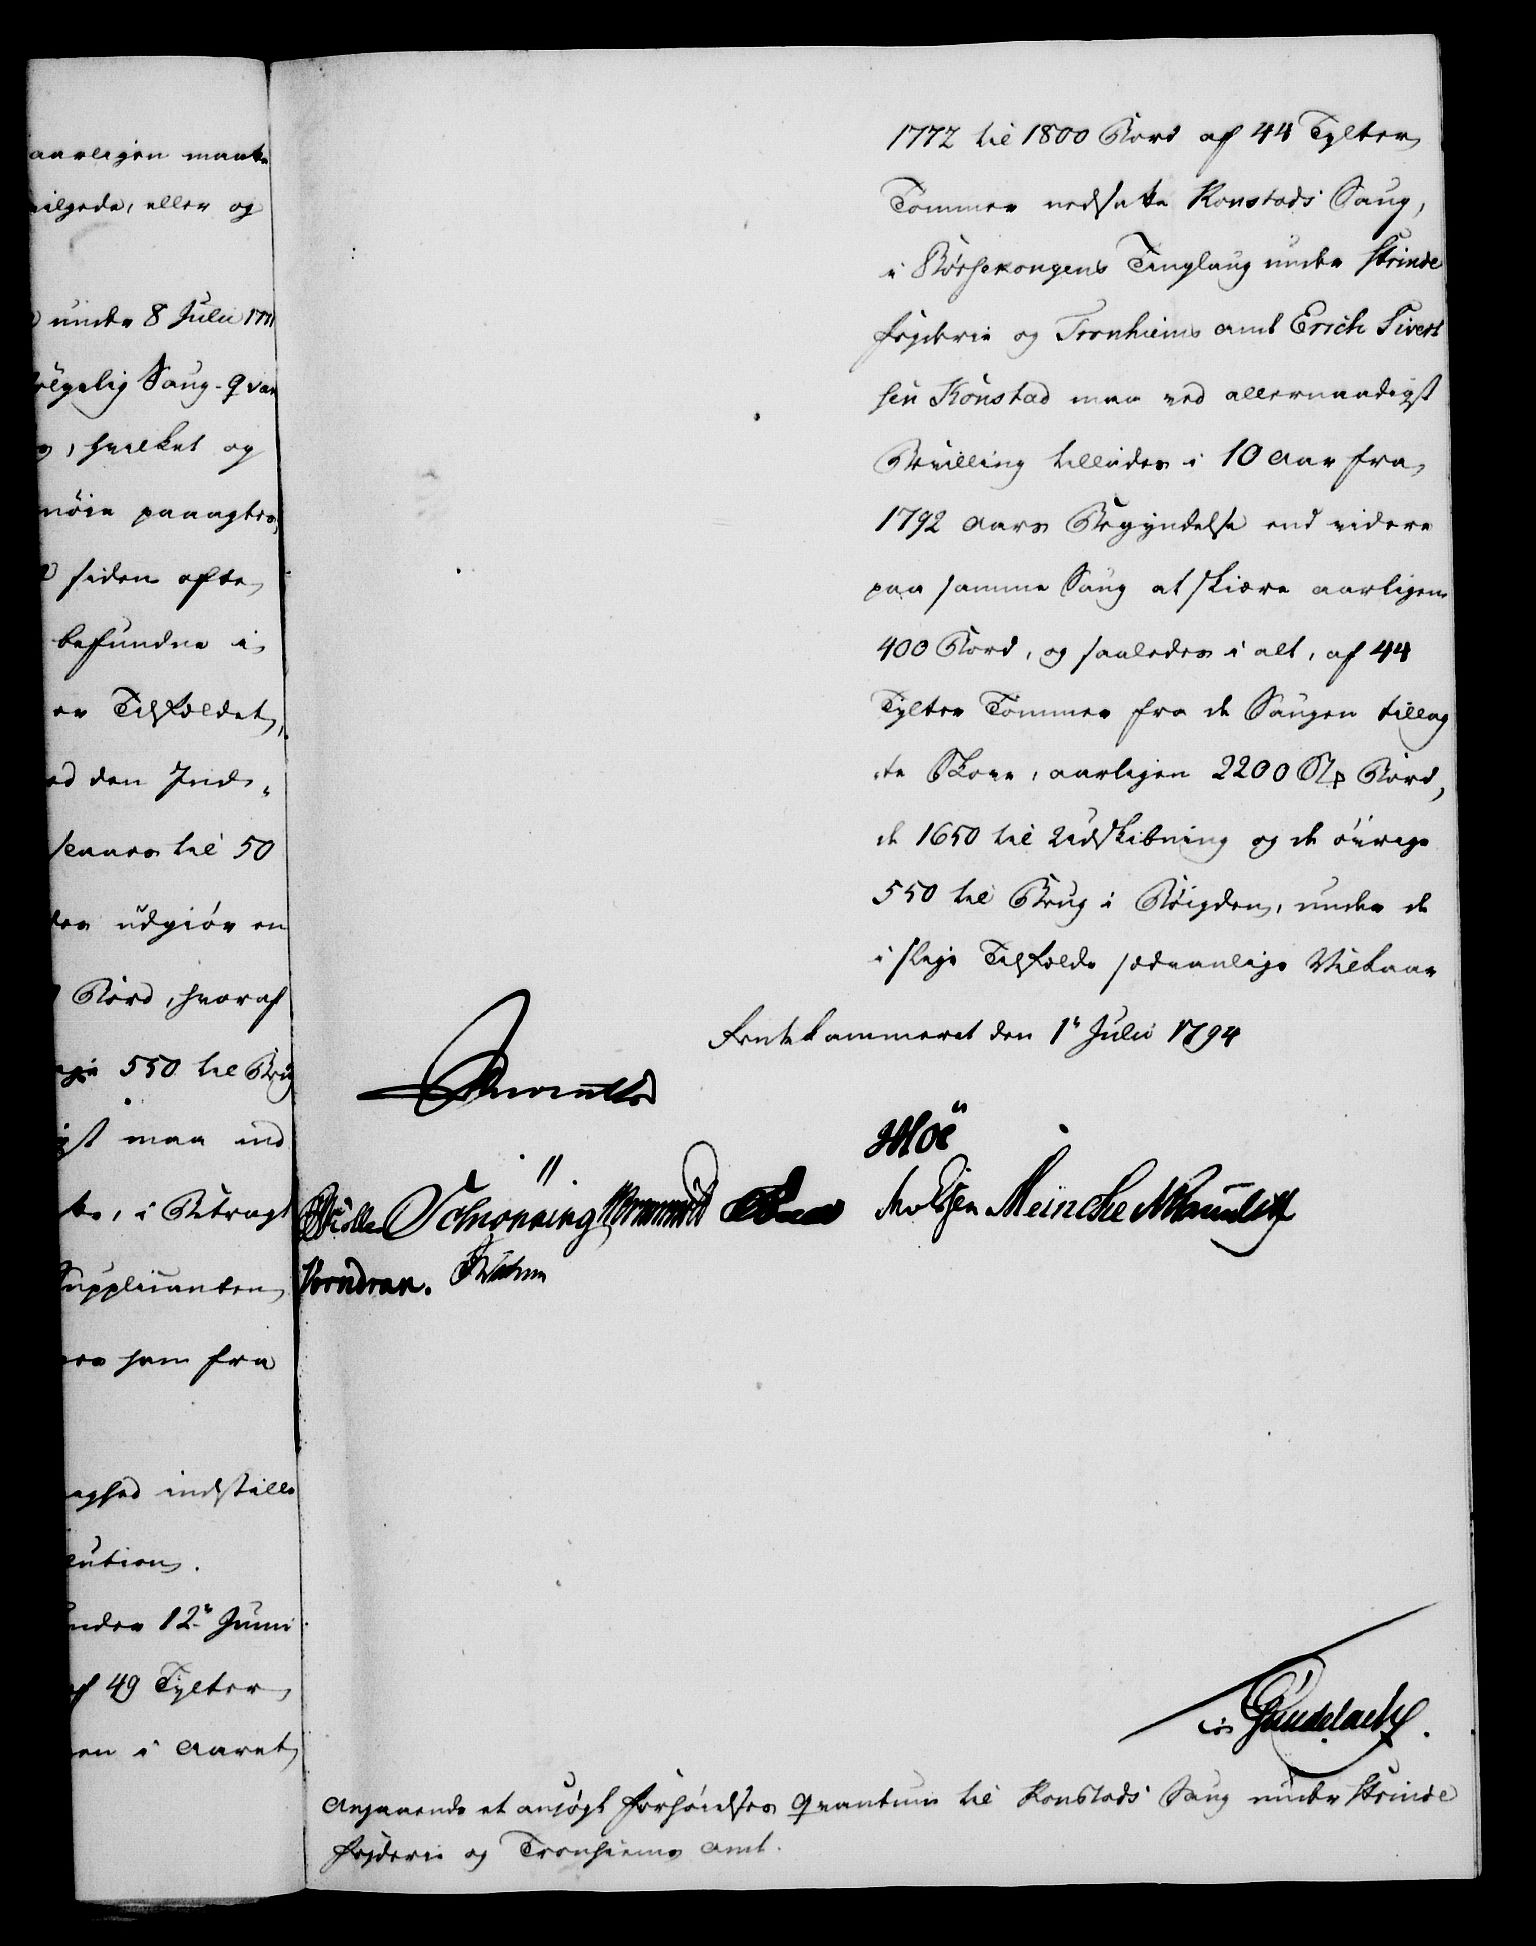 aarligen maatte
tilgode, eller og
under 8 Julii 177
følgelig Saug-Qvan
, hvilket og
nøie paaagtes,
siden efter
befundne i
er Tilfældet,
ed den Inds-
senners til 50
udgiør en
Bord, hvoraf
550 til Brug
maa ind
, i Betragt
Supplicanten
ham fra
aghed indstille
lution.
under 12te Junii
af 49 Tylter
en i Aaret
1772 til 1800 Bord af 44 Tylter
Tømmer nedsatte Konstads Saug,
i Børseskongens Tinglaug under Strinde
Fogderie og Tronhiems Amt Erich Sivert
sen Konstad maa ved allernaadigst
Bevilling tillades i 10 Aar fra
1792 Aars Begyndelse end videre
paa samme Saug at skiære aarligen
400 Bord, og saaledes i alt, af 44
Tylter Tømmer fra de Saugen tillag
te Skove, aarligen 2200 Stk Bord,
de 1650 til Udskibning og de øvrige
550 til Brug i Bøigden, under de
i slige Tilfælde sædvanlige Vilkaar
Rentekammeret den 1te Julii 1794
Schønning Meincke
Vorndran.
Gundelach.
Angaaende et ansøgt forhøielses Qvantum til Konstads Saug under Strinde
Fogderie og Tronhiems Amt.